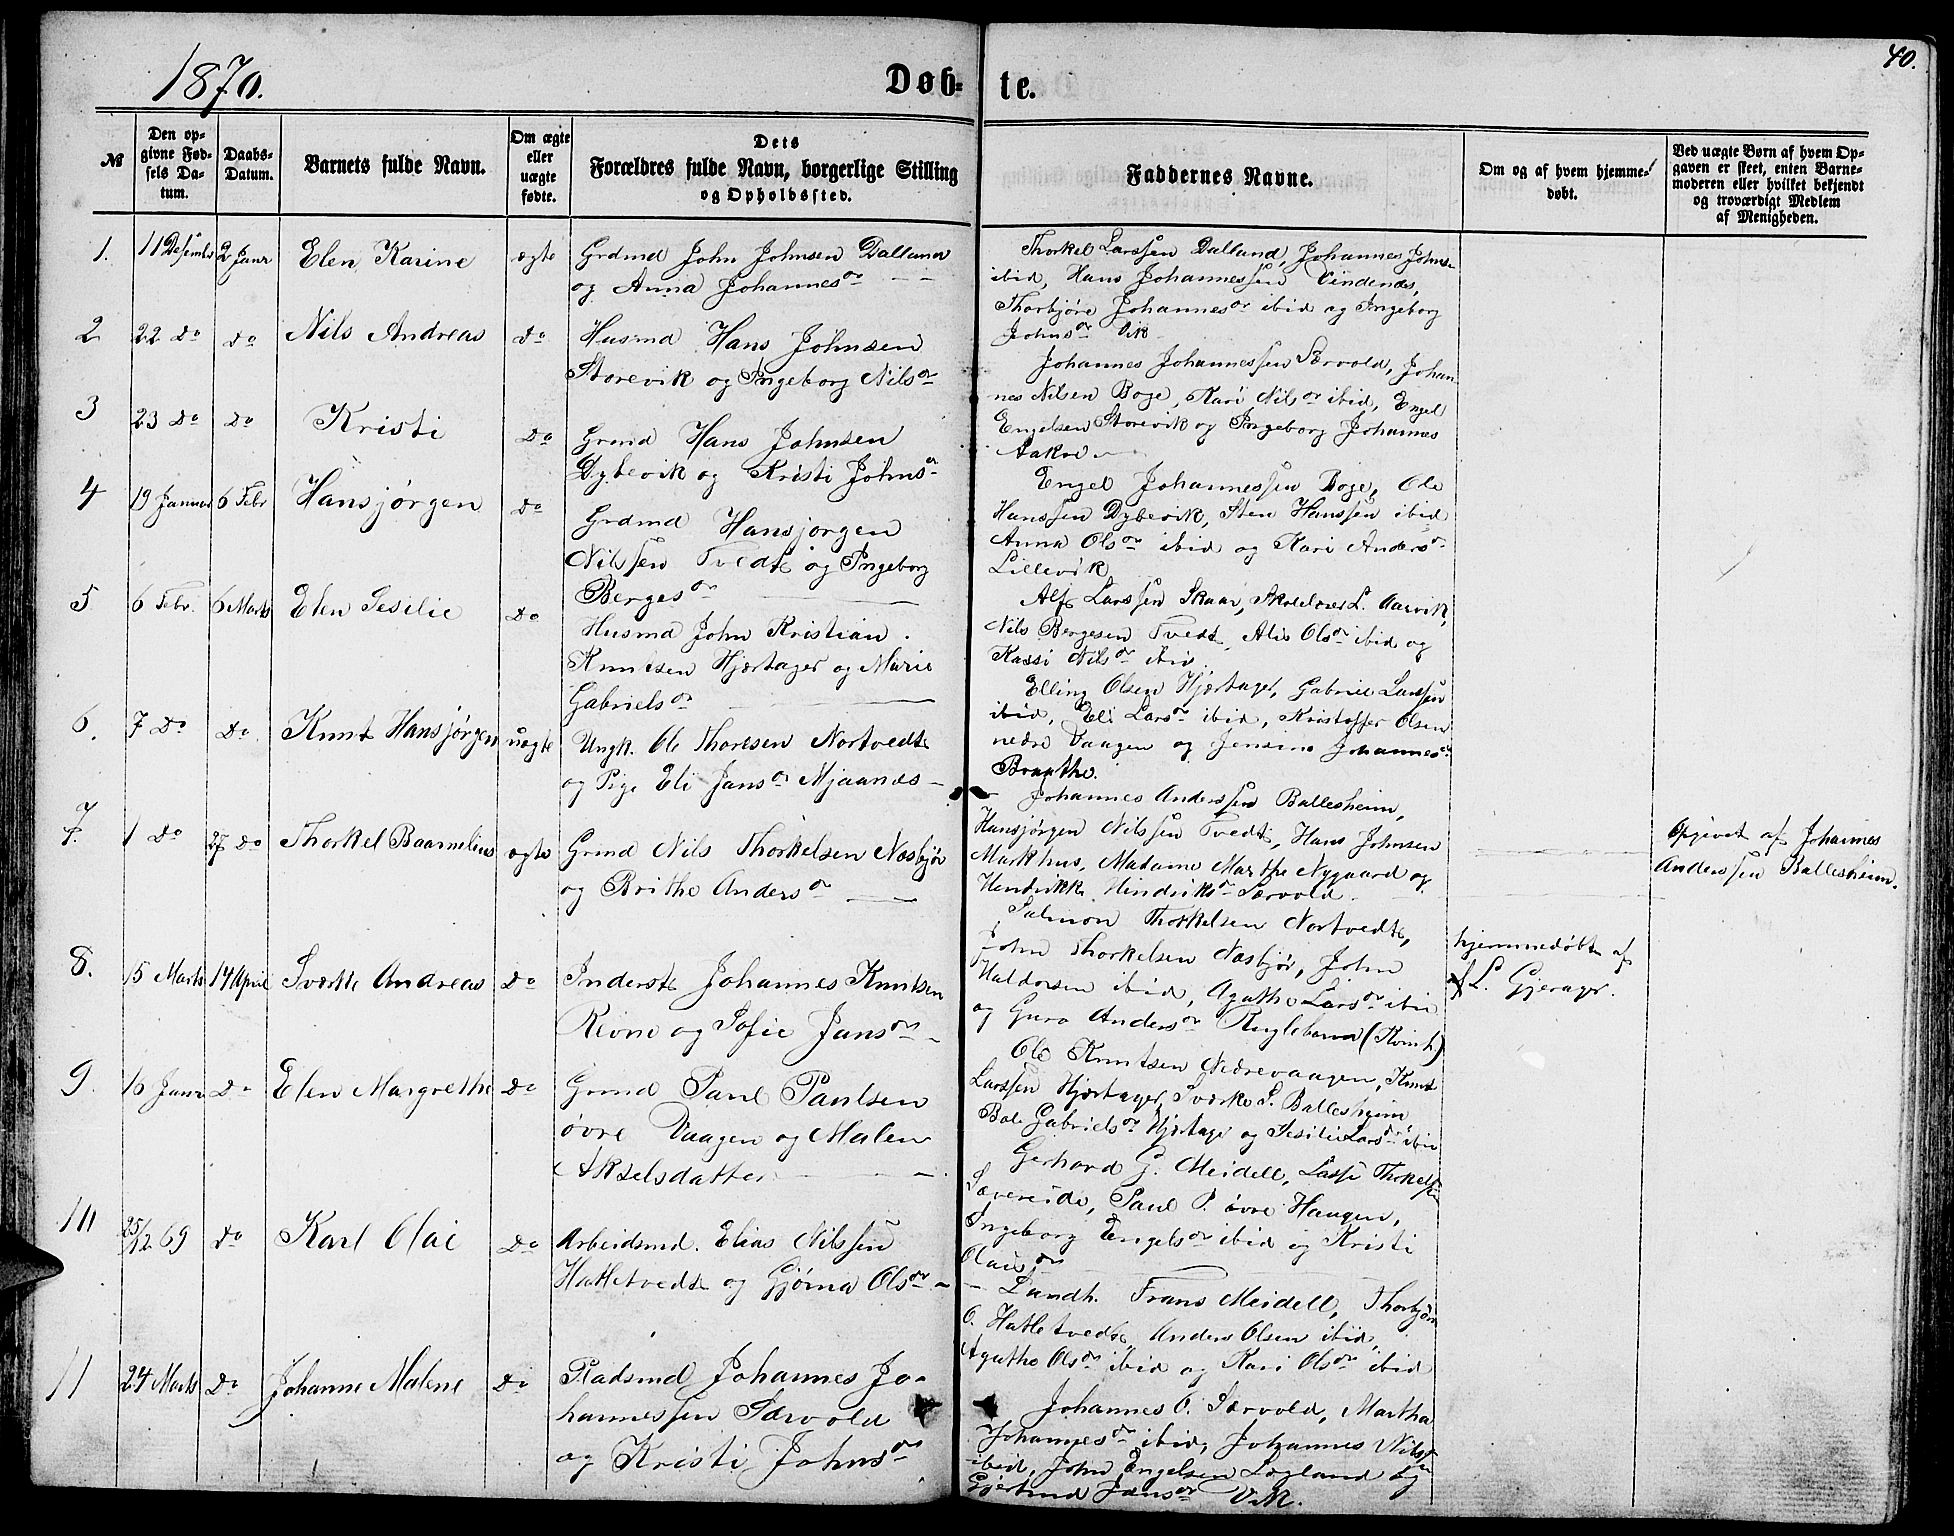 1870.
Døb-
te.
40.
№
Den opgivne Fødsels Datum.
Daabs-Datum.
Barnets fulde Navn.
Om ægte eller uægte fødte.
Dets
Forældres fulde Navn, borgerlige Stilling
og Opholdssted.
Faddernes Navne.
Om og af hvem hjemmedøbt.
Ved uægte Børn af hvem Opgaven er skeet, enten Barnemoderen eller hvilket bekjendt og troværdigt Medlem af Menigheden.
1. 11 Desember 2 Janr Elen Karine ægte
Grdmd John Johnsen Dalland
og Anna Johannesdr
Thorkel Larssen Dalland, Johannes Johns-
ibid, Hans Johannessen Vindenes,
Thorbjøre Johannesdr ibid og Ingeborg
Johnsdr Vik
2 22 Do Do Nils Andreas Do
Husmd Hans Johnsen
Storevik og Ingeborg Nilsdr
Johannes Johannessen Særvold, Johan
nes Nilsen Boge, Kari Nilsdr ibid, Engel
Engelsen Storevik og Ingeborg Johannes
Aakre
3 23 Do Do Kristi Do
Grmd Hans Johnsen
Dybevik og Kristi Johnsdr
Engel Johannessen Boge, Ole
Hanssen Dybevik, Sten Hanssen ibid
Anna Olsdr ibid og Kari Andersdr
Lillevik
4 19 Januar 6 Febr Hansjørgen Do
Grdmd Hansjørgen
Nilssen Tvedt og Ingeborg
Bergesdr
Alf Larssen Skaar, Skolelærer L. Aarvik,
Nils Bergesen Tvedt, Alis Olsdr ibid og
Kassi Nilsdr ibid
5 6 Febr. 6 Marts Elen Sesilie Do
Husmd John Kristian
Knutsen Hjærtager og Marie
Gabrielsdr
Elling Olsen Hjærtager, Gabriel Larssen
ibid, Eli Larsdr ibid, Kristoffer Olsen
nedre Vaagen og Jensine Johannesdr
Braathe.
6. 7 Do Do Knut Hansjørgen uægte
Ungk. Ole Thoresen Nortvedt
og Pige Eli Jansdr Mjaanes
Johannes Anderssen Ballesheim,
Hansjørgen Nilssen Tvedt, Hans Johnsen
Markhus, Madame Marthe Nygaard og
Hendrikke Hindriksdr Særvold
Opgivet af Johannes
Anderssen Ballesheim.
7. 1 Do 27 Do Thorkel Baarnelius ægte
Grmd Nils Thorkelsen Næsbjør
og Brithe Andersdr
Salmon Thorkelsen Nortvedt,
John Thorkelsen Næsbjør, John
Haldorsen ibid, Agathe Larsdr ibid
og Guro Andersdr (Kvinh.)
8. 15 Marts 14 April Sværke Andreas Do
Inderste Johannes Knutsen
Revne og Sofie Jansdr
Ole Knutsen Nedrevaagen, Knut
Larssen Hjærtager, Sværke S. Ballesheim
Gabrielsdr Hjærtager og Sesilie Larsdr ibid
hjemmedøbt af
L. Gjerager.
9. 16 Janr Do Elen Margrethe Do
Grmd Paul Paulsen
øvre Vaagen og Malen
Akselsdatter
Gerhard G. Meidell, Lasse Thorkelssen
Sævereide, Paul P. øvre Haugen,
Ingeborg Engelsdr ibid og Kristi
Olaisdr
10 25/12 69 Do Karl Olai Do
Arbeidsmd. Elias Nilssen
Hatletvedt og Gjørna Olsdr
Landh. Frans Meidell, Thorbjørn
O. Hatletvedt, Anders Olsen ibid,
Agathe Olsdr ibid og Kari Olsdr ibid
11 24 Marts Do Johanne Malene Do
Pladsmd Johannes Jo-
hannessen Særvold
og Kristi Johnsdr
Johannes O. Særvold, Martha
Johannesdr ibid, Johannes Nilssen
ibid, John Engelsen Lægland og
Gjertrud Jansdr Vik.